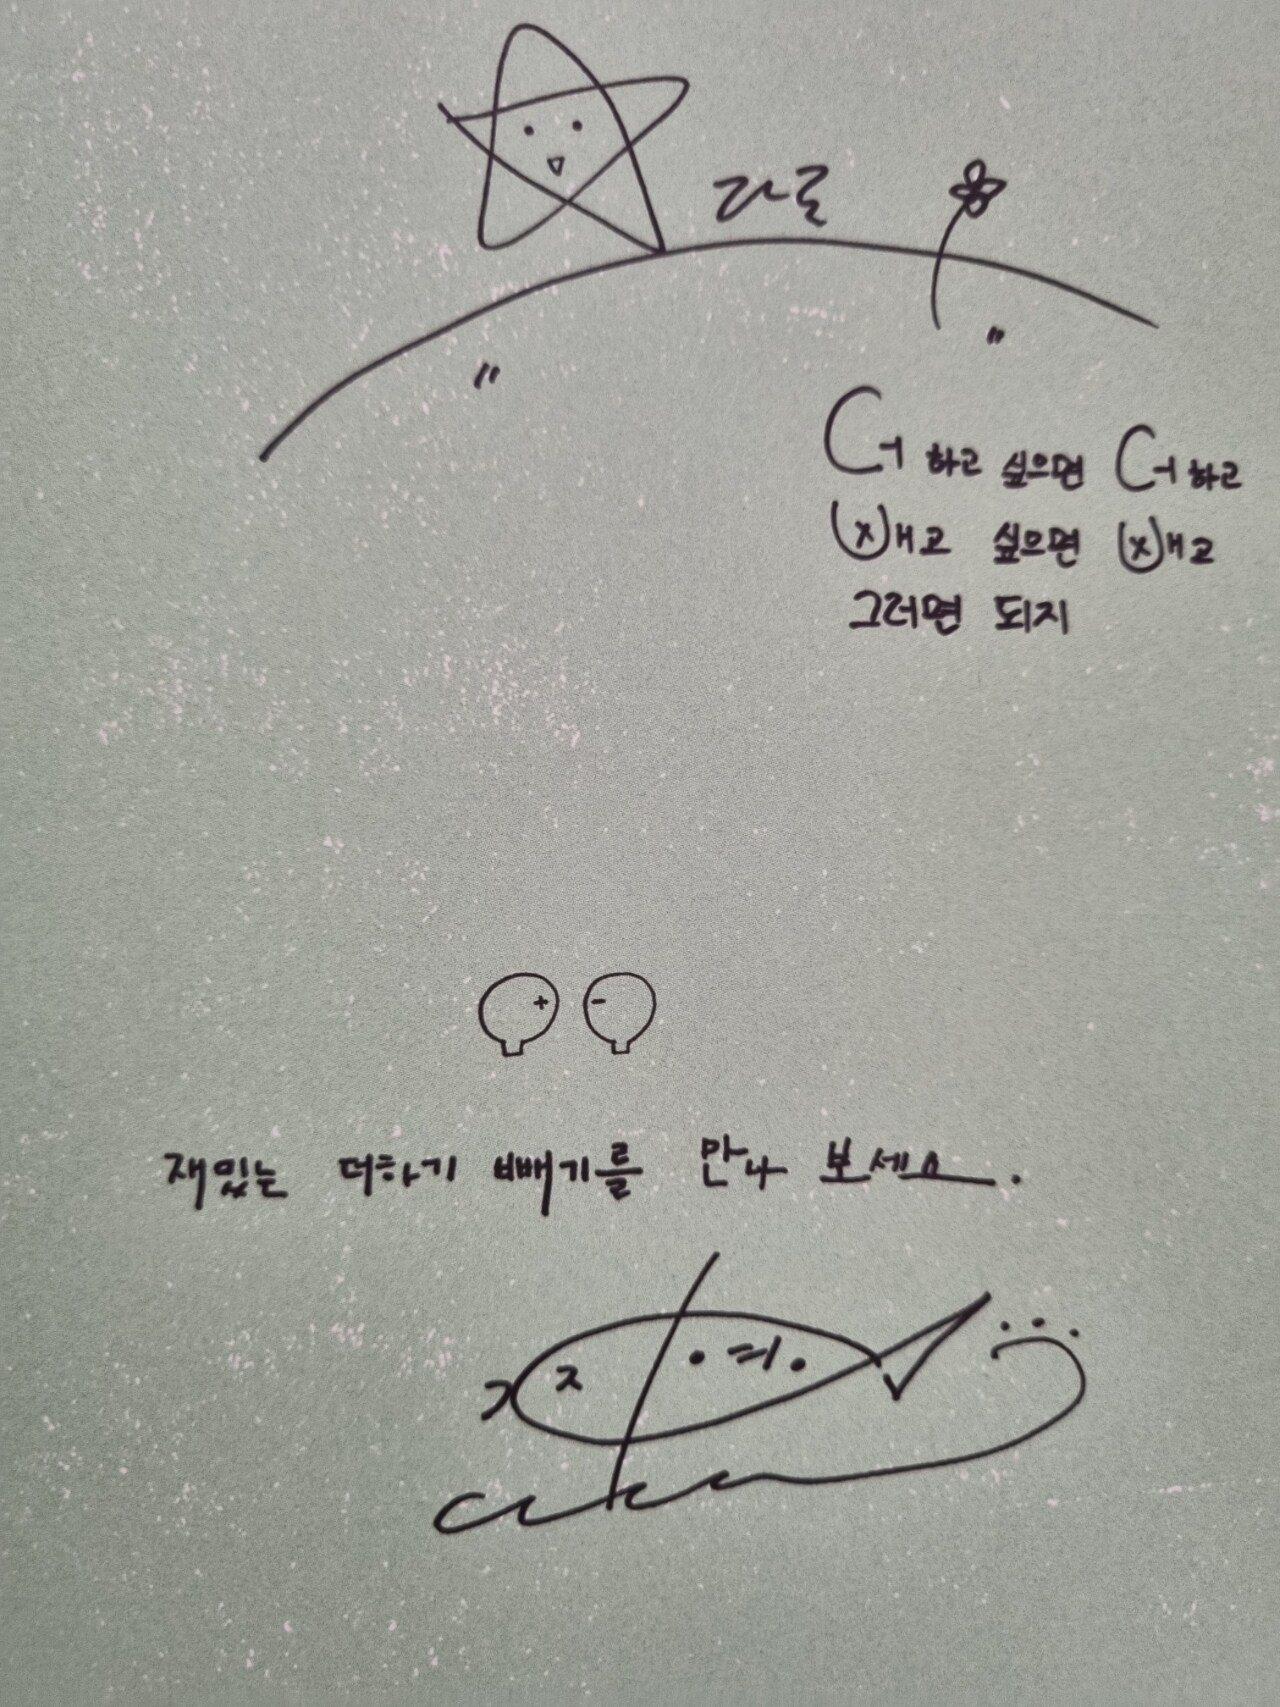 더하고 싶으면 더하고
빼고 싶으면 빼고
그러면 되지
+ -
재밌는 더하기 빼기를 만나 보세요.